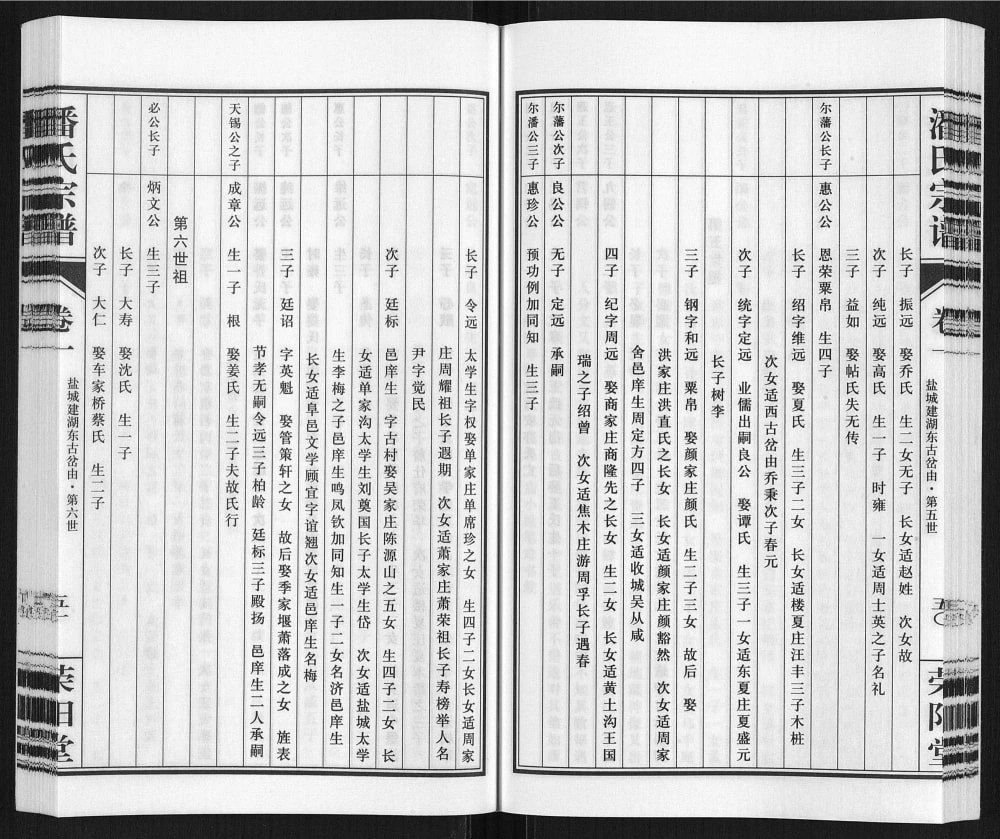 潘氏宗谱
卷一
盐城建湖东古岔由·第五世
荥阳堂
长子 振远 娶乔氏 生二女无子 长女适赵姓 次女故
次子 纯远 娶高氏 生一子 时雍 一女适周士英之子名礼
三子 益如 娶帖氏失无传
尔藩公长子 惠公公 恩荣粟帛 生四子
长子 绍字维远 娶夏氏 生三子二女 长女适楼夏庄汪丰三子木桩
次女适西古岔由乔秉次子春元
次子 统字定远 业儒出嗣良公 娶谭氏 生三子一女适东夏庄夏盛元
长子树李
三子 钢字和远 粟帛 娶颜家庄颜氏 生二子三女 故后 娶
洪家庄洪直氏之长女 长女适颜家庄颜豁然 次女适周家
舍邑庠生周定方四子 三女适收城吴从咸
四子 纪字周远 娶商家庄商隆先之长女 生二女 长女适黄土沟王国
瑞之子绍曾 次女适焦木庄游周孚长子遇春
尔藩公次子 良公公 无子 定远 承嗣
尔潘公三子 惠珍公 预功例加同知 生三子
长子 令远 太学生字权娶单家庄单席珍之女 生四子二女长女适周家
庄周耀祖长子遐期 次女适萧家庄萧荣祖长子寿榜举人名
尹字觉民
次子 廷标 邑庠生 字古村娶吴家庄陈源山之五女 生四子二女 长
女适单家沟太学生刘奠国长子太学生岱 次女适盐城太学
生李梅之子邑庠生鸣凤钦加同知生一子二女名济邑庠生
长女适阜邑文学顾宜字谊翘次女适邑庠生名梅
三子 廷诏 字英魁 娶管策轩之女 故后娶季家堰萧落成之女 旌表
节孝无嗣令远三子柏龄 廷标三子殿扬 邑庠生二人承嗣
天锡公之子 成章公 生一子 根 娶姜氏 生二子夫故氏行
第六世祖
必公长子 炳文公 生三子
长子 大寿 娶沈氏 生一子
次子 大仁 娶车家桥蔡氏 生二子
潘氏宗谱
卷一
盐城建湖东古岔由·第六世
荥阳堂